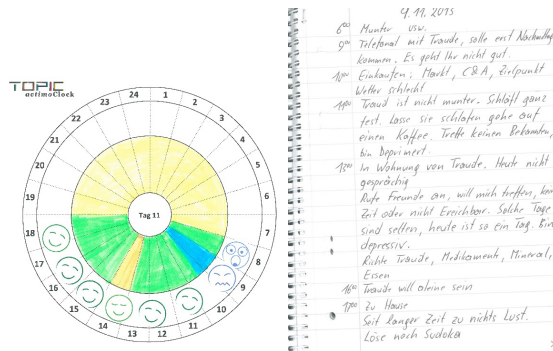 TOPIC
actimoClock
24
1
2
3
4
5
6
7
8
9
10
11
12
13
14
15
16
17
18
19
20
21
22
23
Tag 11
9.11.2015
6 00 Munter usw.
9 00 Telefonat mit Traude, solle erst Nachmittag
kommen. Es geht ihr nicht gut.
10 00 Einkaufen: Markt, C&A, Zielpunkt
Wetter schlecht
14 00 Traud ist nicht munter. Schläft ganz
fest. Lasse sie schlafen gehe auf
einen Kaffee. Treffe keinen Bekannten,
bin Deprimiert.
15 00 In Wohnung von Traude. Heute nicht
gesprächig
Rufe Freunde an, will mich treffen,
Zeit oder nicht Ereichbar. Solche Tage
sind selten, heute ist so ein Tag. Bin
depressiv.
Richte Traude, Medikamente, Mineral,
Essen
16 00 Traude will alleine sein
17 00 Zu Hause
Seit langer Zeit zu nichts Lust.
Löse noch Sudoku